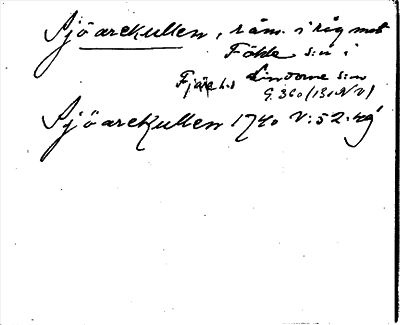 Sjöarekullen, råm. i råg mot
Fökle s:n i
Fjäre h:d Lindome s:n
G. 360 (13 NV)
Sjöarekullen 1740 V:52.49